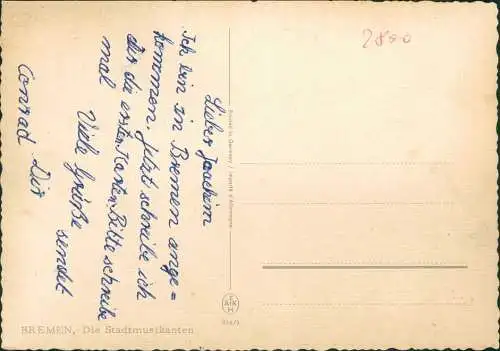 Lieber Joachim
Ich bin in Bremen ange=
kommen. Jetzt schreibe ich
dir die erste Karte. Bitte schreibe
mal
Viele Grüße
sendet
Dir
Conrad
2800
Printed in Germany / Importé d'Allemagne
AK
BREMEN, Die Stadtmusikanten